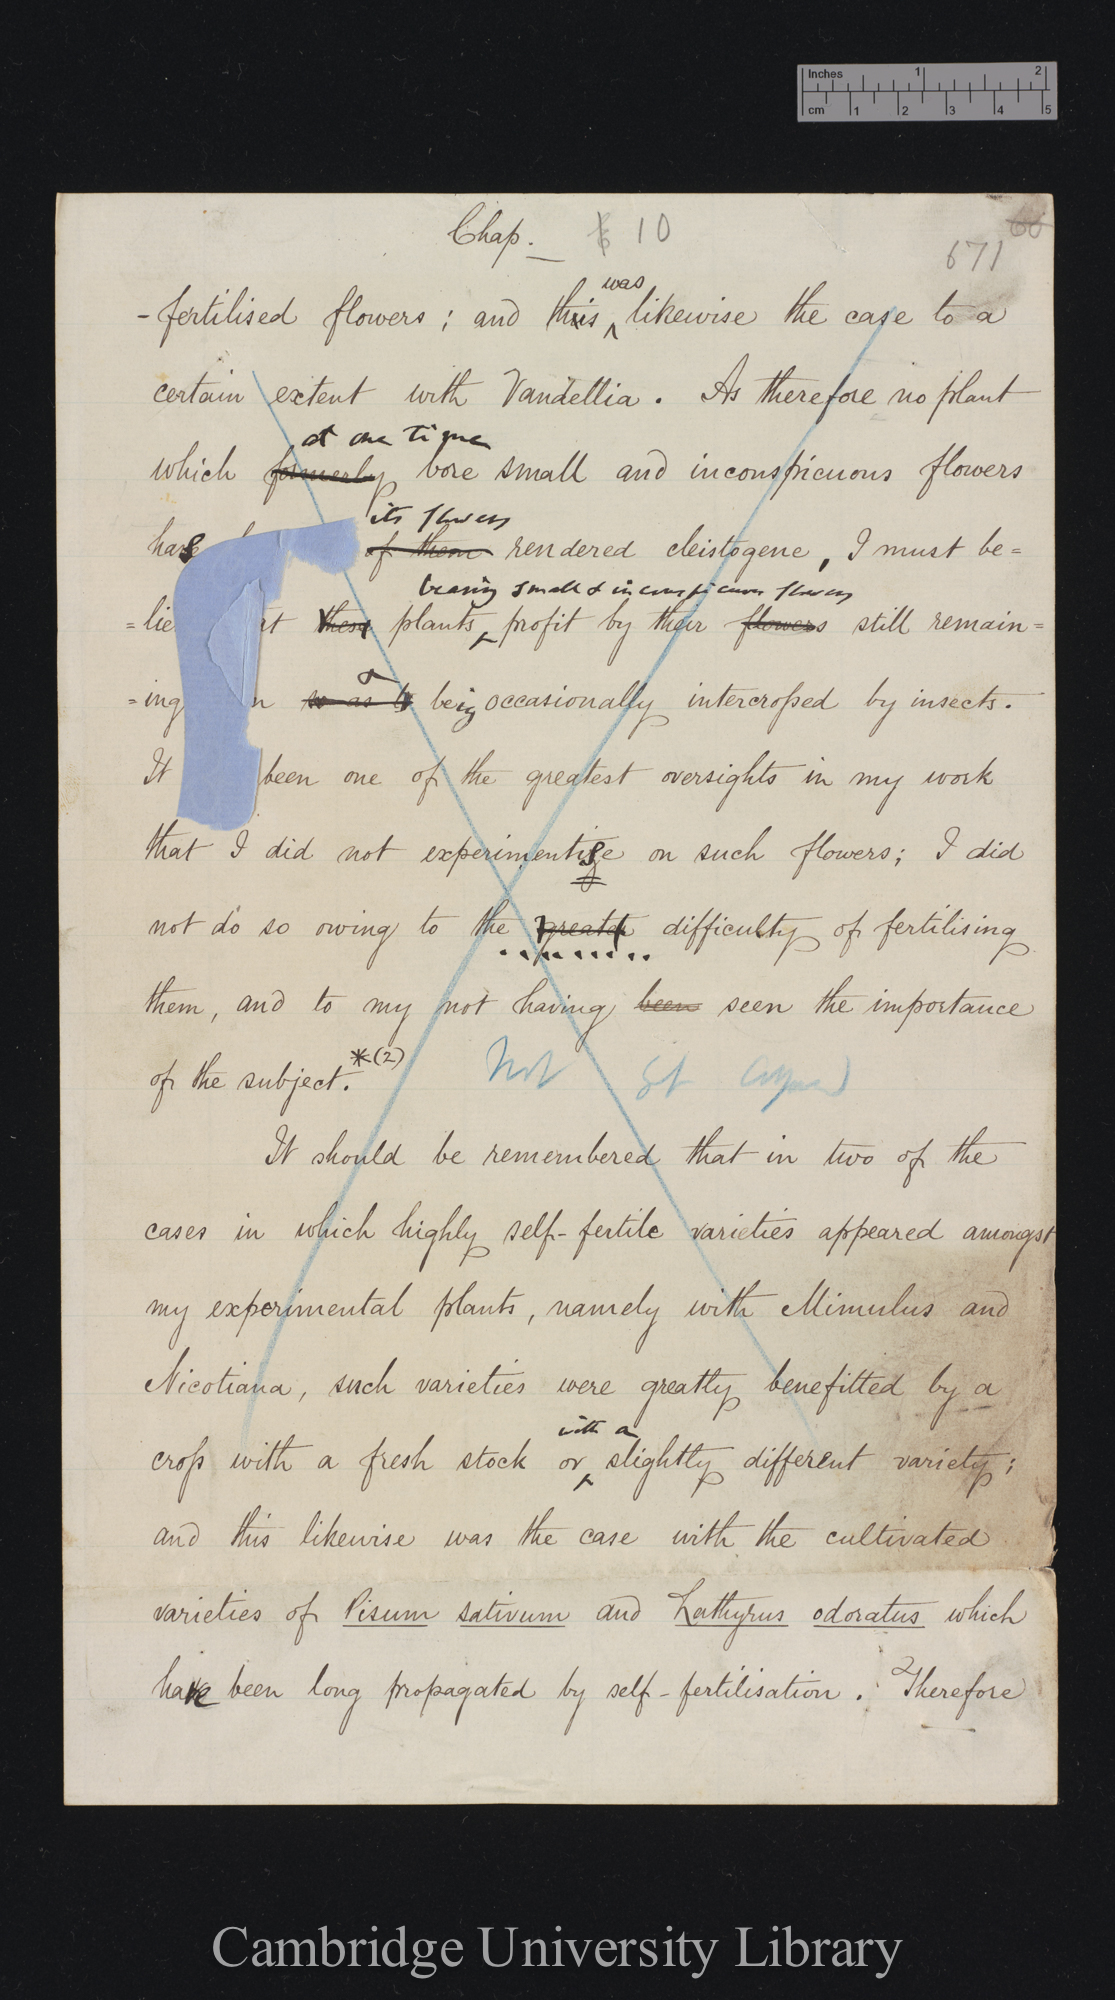 Inches 1 2
cm 1 2 3 4 5
Chap. 10
60
671
-fertilised flowers ; and this was likewise the case to a
certain extent with Vandellia. As therefore no plant
at one time
which formerly bore small and inconspicuous flowers
its flowers
has of them rendered cleistogene, I must be=
bearing small & inconspicuous flowers
=lie these plants profit by their flowers still remain=
=ing so as to being occasionally intercrossed by insects.
It been one of the greatest oversights in my work
that I did not experimentise on such flowers; I did
not do so owing to the great difficulty of fertilising
them, and to my not having been seen the importance
of the subject.*(2)
Not
It should be remembered that in two of the
cases in which highly self-fertile varieties appeared amongst
my experimental plants, namely with Mimulus and
Nicotiana, such varieties were greatly benefitted by a
with a
cross with a fresh stock or slightly different variety;
and this likewise was the case with the cultivated
varieties of Pisum sativum and Lathyrus odoratus which
have been long propagated by self-fertilisation. Therefore
Cambridge University Library